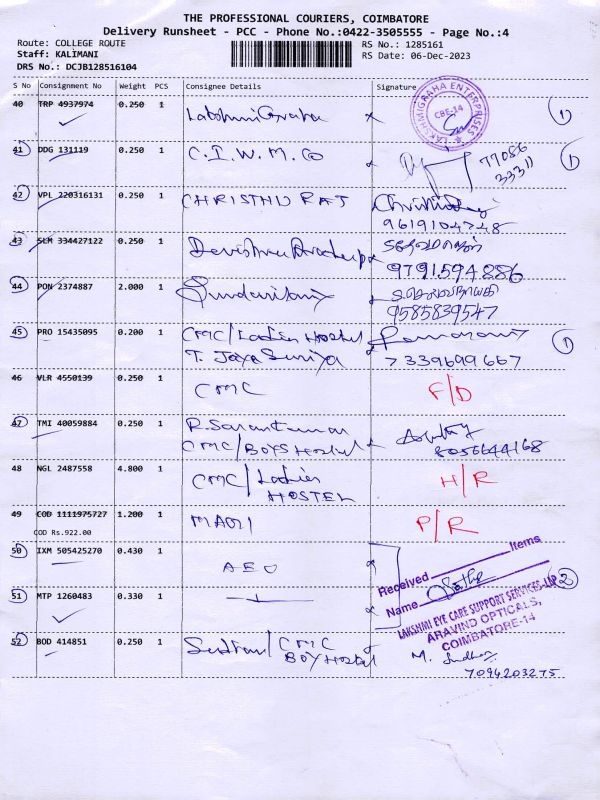 THE PROFESSIONAL COURIERS, COIMBATORE
Delivery Runsheet - PCC - Phone No.:0422-3505555 - Page No.:4
Route: COLLEGE ROUTE RS No.: 1285161
Staff: KALIMANI RS Date: 06-Dec-2023
DRS No.: DCJB128516104
S No Consignment No Weight PCS Consignee Details Signature
40 TRP 4937974 0.250 1 x LAKSHMIGRAHA ENTERPRISES CBE-14 1
41 DDG 131119 0.250 1 C.I.W.M.CO 77086 1
33311
42 VPL 220316131 0.250 1 CHRISTHU RAJ
9619104748
43 SLM 334427122 0.250 1
9791594886
44 PON 2374887 2.000 1
9585839547
45 PRO 15435095 0.200 1 CMC/Ladies Hostel 1
T. Jaya Suriya x 7339699667
46 VLR 4550139 0.250 1 CMC F/D
47 TMI 40059884 0.250 1
CMC/BOYS Hostel 8056644168
48 NGL 2487558 4.800 1 CMC/Ladies H/R
HOSTEL
49 COD 1111975727 1.200 1 P/R
COD Rs.922.00
50 IXM 505425270 0.430 1 Received Items
51 MTP 1260483 0.330 1 Name 2
LAKSHMI EYE CARE SUPPORT SERVICES-LAP
ARAVIND OPTICALS,
COIMBATORE-14
52 BOD 414851 0.250 1 CMC
BOY Hostel
7094203275